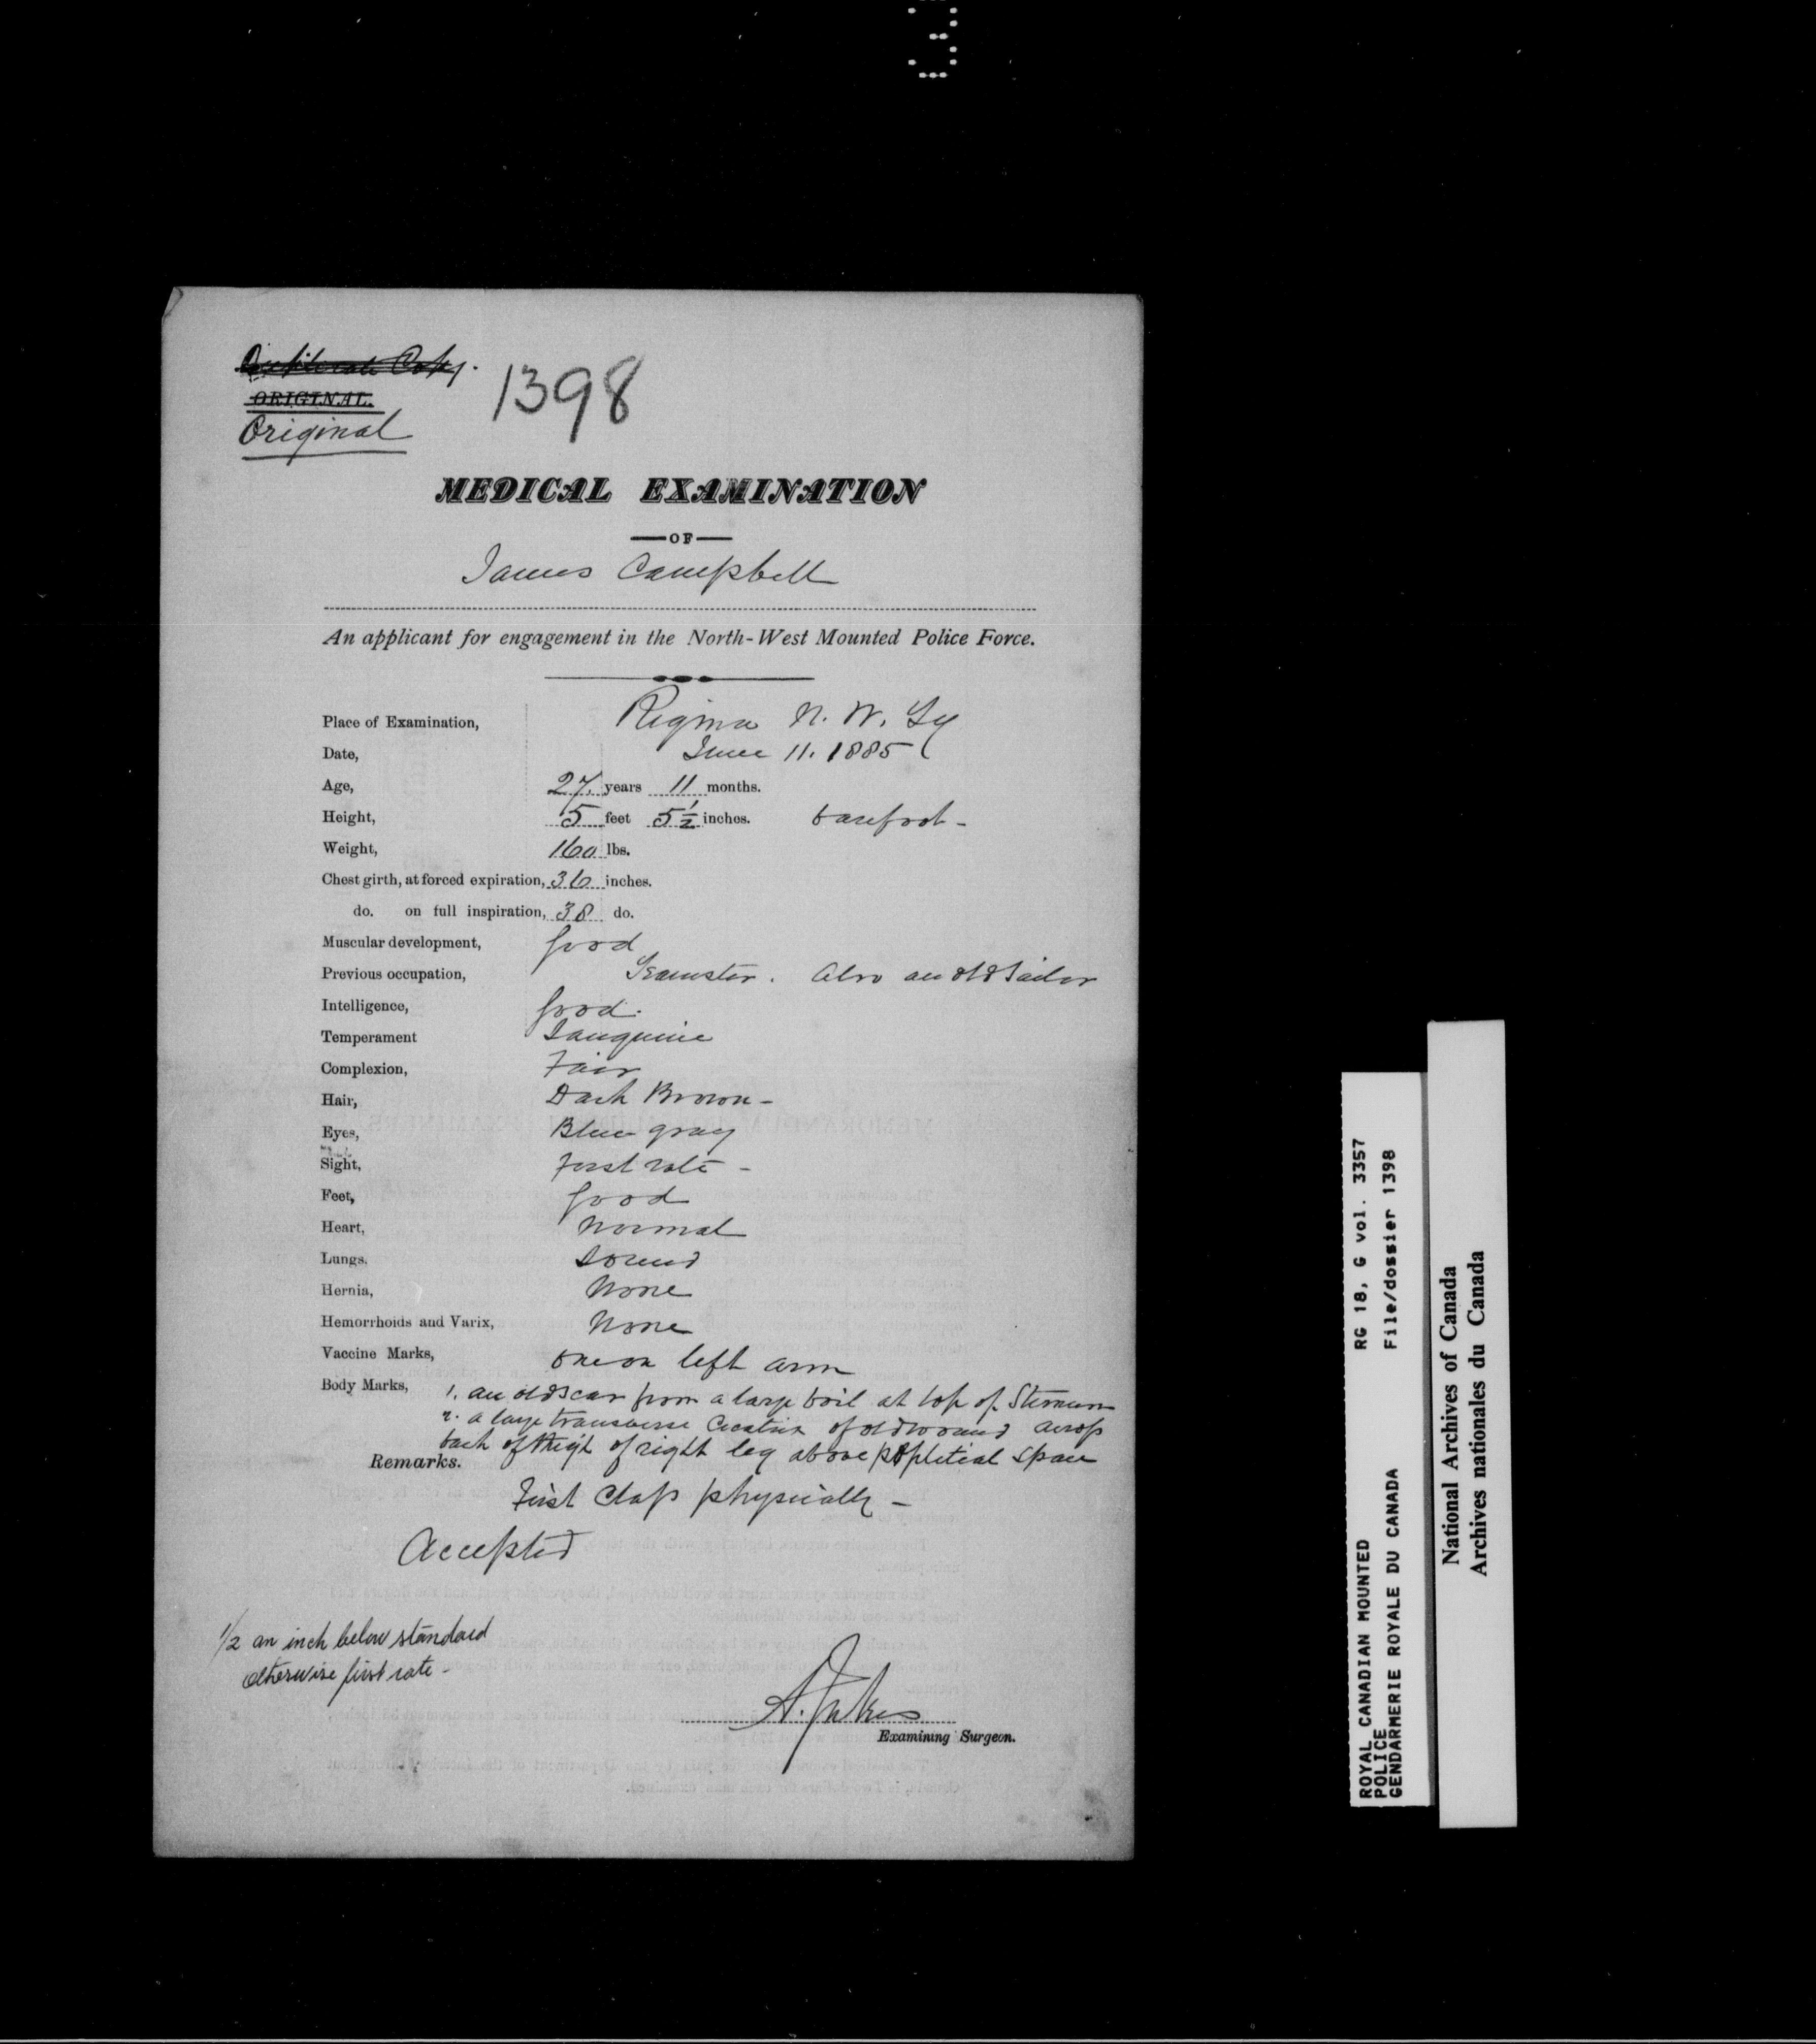 3
Duplicate Copy.
ORIGINAL.
Original
1398
MEDICAL EXAMINATION
—OF—
James Campbell
An applicant for engagement in the North-West Mounted Police Force.
Place of Examination, Regina N. W. Ty
Date, June 11. 1885
Age, 27. years 11 months.
Height, 5 feet 5 1/2 inches. barefoot -
Weight, 160 lbs.
Chest girth, at forced expiration, 36 inches.
do. on full inspiration, 38 do.
Muscular development, good
Previous occupation, Teamster. Also an old Sailor
Intelligence, good.
Temperament Sanguine
Complexion, Fair
Hair, Dark Brown -
Eyes, Blue gray
Sight, first rate -
Feet, good
Heart, Normal
Lungs, Sound
Hernia, None
Hemorrhoids and Varix, None
Vaccine Marks, one on left arm
Body Marks, 1. an old scar from a large boil at top of Sternum
2. a large transverse Cicatrix of old wound across
back of thigh of right leg above popliteal space
Remarks.
First Class physically -
Accepted
1/2 an inch below standard
otherwise first rate -
A. Jukes
Examining Surgeon.
ROYAL CANADIAN MOUNTED RG 18, G vol. 3357
POLICE
GENDARMERIE ROYALE DU CANADA File/dossier 1398
National Archives of Canada
Archives nationales du Canada